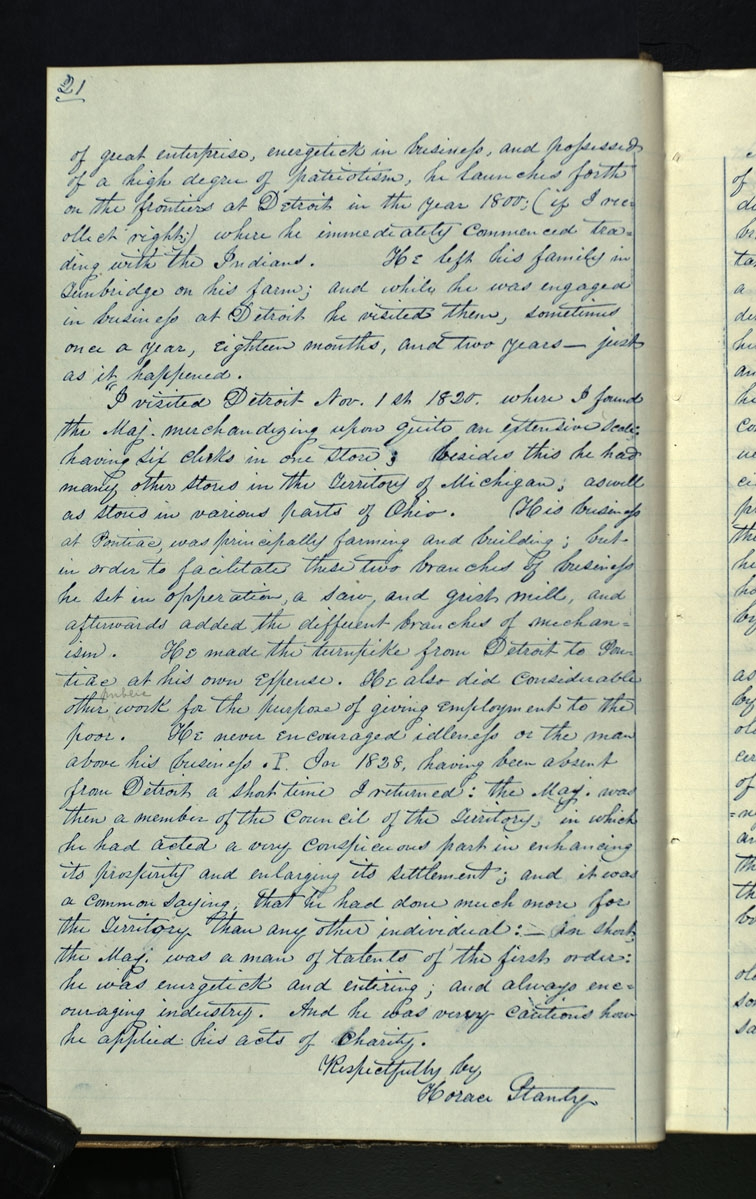 21
of great enterprise, energetick in business, and possessed
of a high degree of patriotism, he launches forth
on the frontiers at Detroit in the year 1800; (if I rec=
ollect right;) where he immediately commenced tra=
ding with the Indians. He left his family in
Tunbridge on his farm; and while he was engaged
in business at Detroit he visited them, sometimes
once a year, eighteen months, and two years — just
as it happened.
"I visited Detroit Nov. 1st 1820. where I found
the Maj. merchandizing upon quite an extensive scale;
having six clerks in one store; besides this he had
many other stores in the Territory of Michigan; as well
as stores in various parts of Ohio. His business
at Pontiac, was principally farming and building; but
in order to facilitate these two branches of business
he set in opperation, a saw, and grist mill, and
afterwards added the different branches of mechan=
ism. He made the turnpike from Detroit to Pon=
tiac at his own expense. He also did considerable
public
other work for the purpose of giving employment to the
poor. He never encouraged idleness or the man
above his business. I. In 1828, having been absent
from Detroit a short time I returned: the Maj. was
then a member of the Council of the Territory; in which
he had acted a very conspicuous part in enhancing
its prosperity and enlarging its settlement; and it was
a common saying, that he had done much more for
the Territory than any other individual: — in short,
the Maj. was a man of talents of the first order:
he was energetick and entiring; and always enc=
ouraging industry. And he was verry cautious how
he applied his acts of charity.
Respectfully by
Horace Stanly